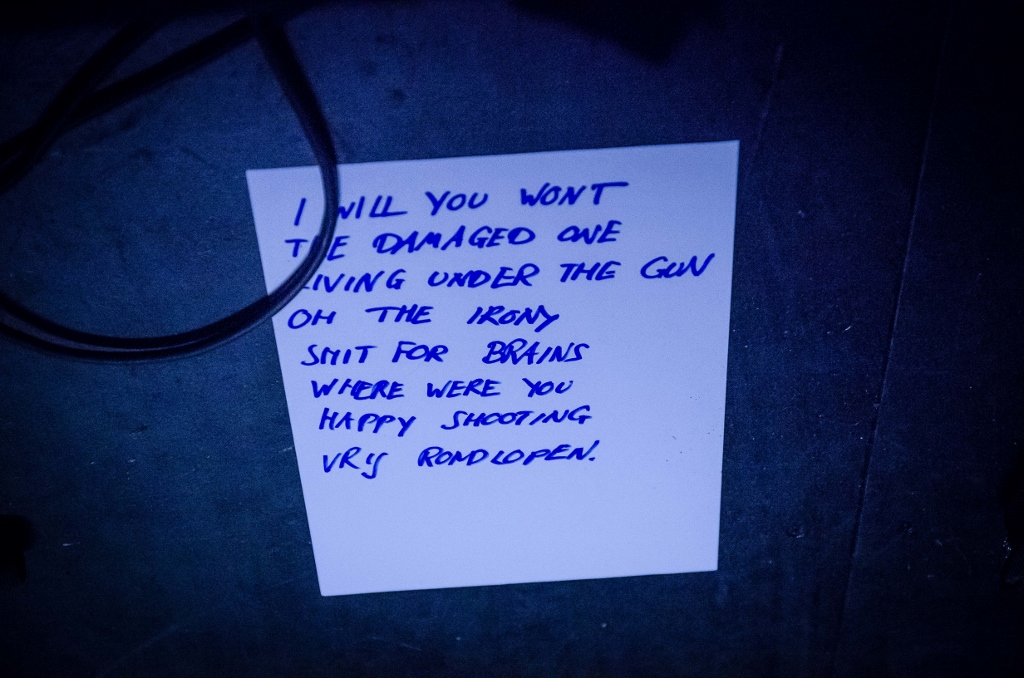 I WILL YOU WONT
THE DAMAGED ONE
LIVING UNDER THE GUN
OH THE IRONY
SHIT FOR BRAINS
WHERE WERE YOU
HAPPY SHOOTING
VRIJ RONDLOPEN.